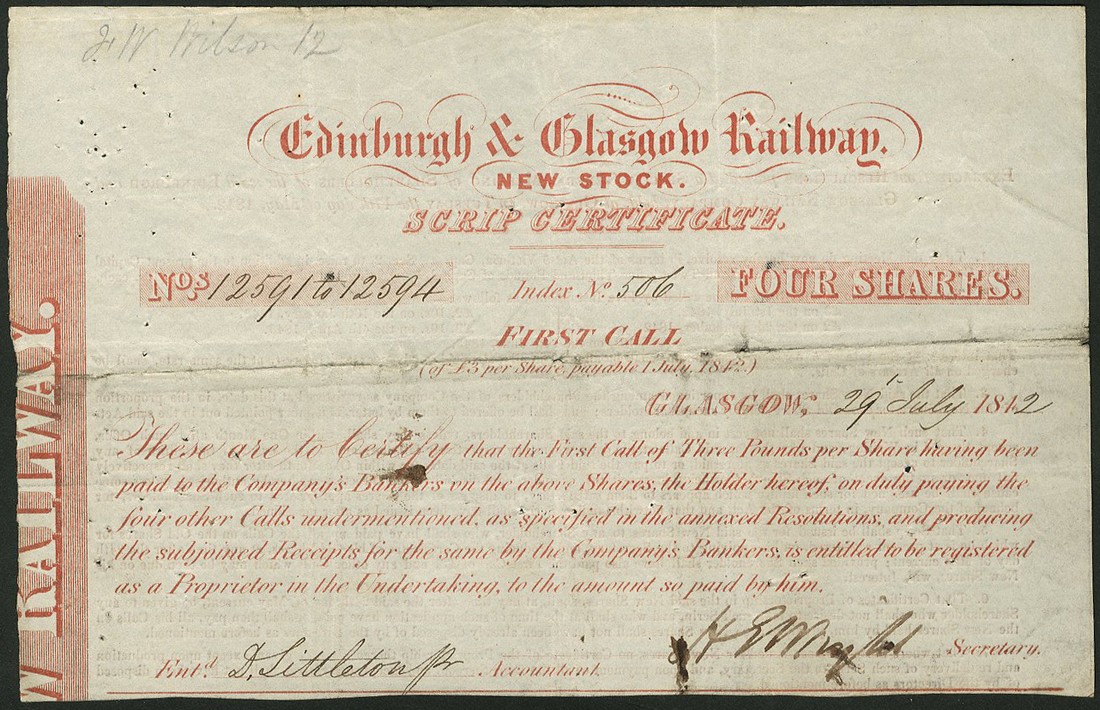 Wilson 12
Edinburgh & Glasgow Railway.
NEW STOCK.
SCRIP CERTIFICATE.
Nos. 12591 to 12594 Index No. 506 FOUR SHARES.
FIRST CALL
(of £3 per Share, payable 1 July, 1842.)
GLASGOW, 29 July 1842
These are to Certify that the First Call of Three Pounds per Share having been
paid to the Company's Bankers on the above Shares, the Holder hereof, on duly paying the
four other Calls undermentioned, as specified in the annexed Resolutions, and producing
the subjoined Receipts for the same by the Company's Bankers, is entitled to be registered
as a Proprietor in the Undertaking, to the amount so paid by him.
Secretary.
Entd. D. Littleton Accountant.
W RAILWAY.